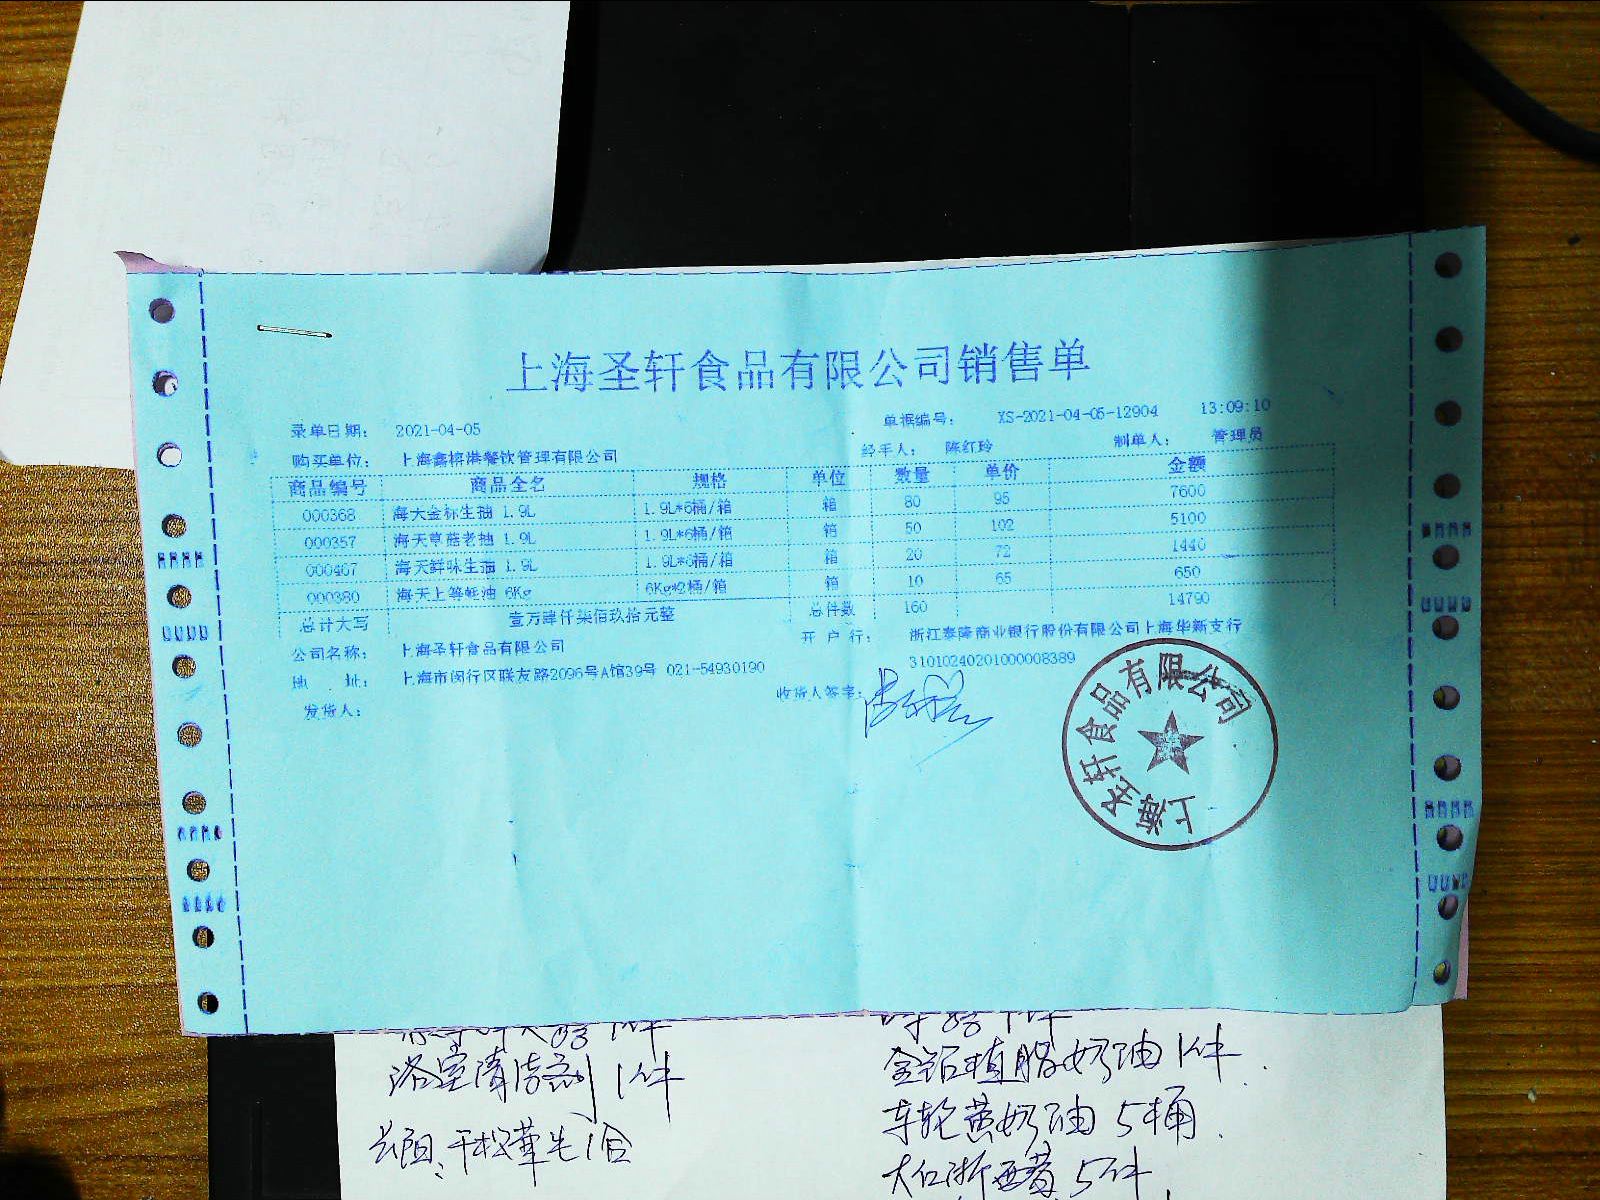 上海圣轩食品有限公司销售单
录单日期： 2021-04-05 单据编号： XS-2021-04-05-12904 13:09:10
购买单位： 上海鑫榕港餐饮管理有限公司 经手人： 陈红玲 制单人： 管理员
商品编号 商品全名 规格 单位 数量 单价 金额
000368 海天金标生抽 1.9L 1.9L*6桶/箱 箱 80 95 7600
000357 海天草菇老抽 1.9L 1.9L*6桶/箱 箱 50 102 5100
000407 海天鲜味生抽 1.9L 1.9L*6桶/箱 箱 20 72 1440
000380 海天上等蚝油 6Kg 6Kg*2桶/箱 箱 10 65 650
总计大写 壹万肆仟柒佰玖拾元整 总件数 160 14790
公司名称： 上海圣轩食品有限公司 开户行： 浙江泰隆商业银行股份有限公司上海华新支行
地址： 上海市闵行区联友路2096号A馆39号 021-54930190 31010240201000008389
发货人： 收货人签字：
上海圣轩食品有限公司
浴室清洁剂 1件
金钻植脂奶油 1件
车轮黄奶油 5桶
大红浙醋 5件